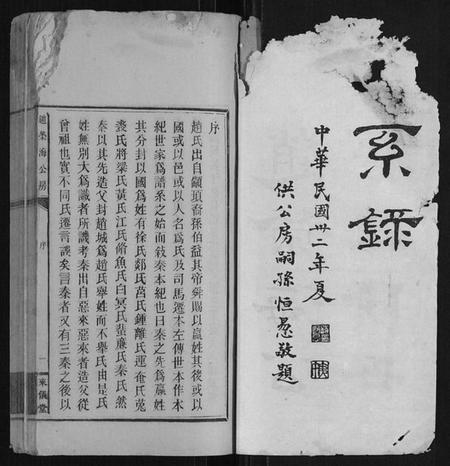 系錄
中華民國卅二年夏
供公房嗣孫恒恳敬題
序
趙氏出自顓頊裔孫伯益其帝舜賜以嬴姓其後或以
國或以邑或以人名爲氏及司馬遷本左傳世本作本
紀世家爲譜系之始而敍秦本紀也曰秦之先爲嬴姓
其分封以國爲姓有徐氏郯氏莒氏鍾離氏運奄氏菟
裘氏將梁氏黃氏江氏脩魚氏白冥氏蜚廉氏秦氏然
秦以其先造父封趙城爲趙氏舉姓而不舉氏由是氏
姓無別大爲識者所譏考秦出自惡來惡來者造父從
曾祖也實不同氏遷言誤矣言秦者又有三秦之後以
海公房
序
一
來儀堂